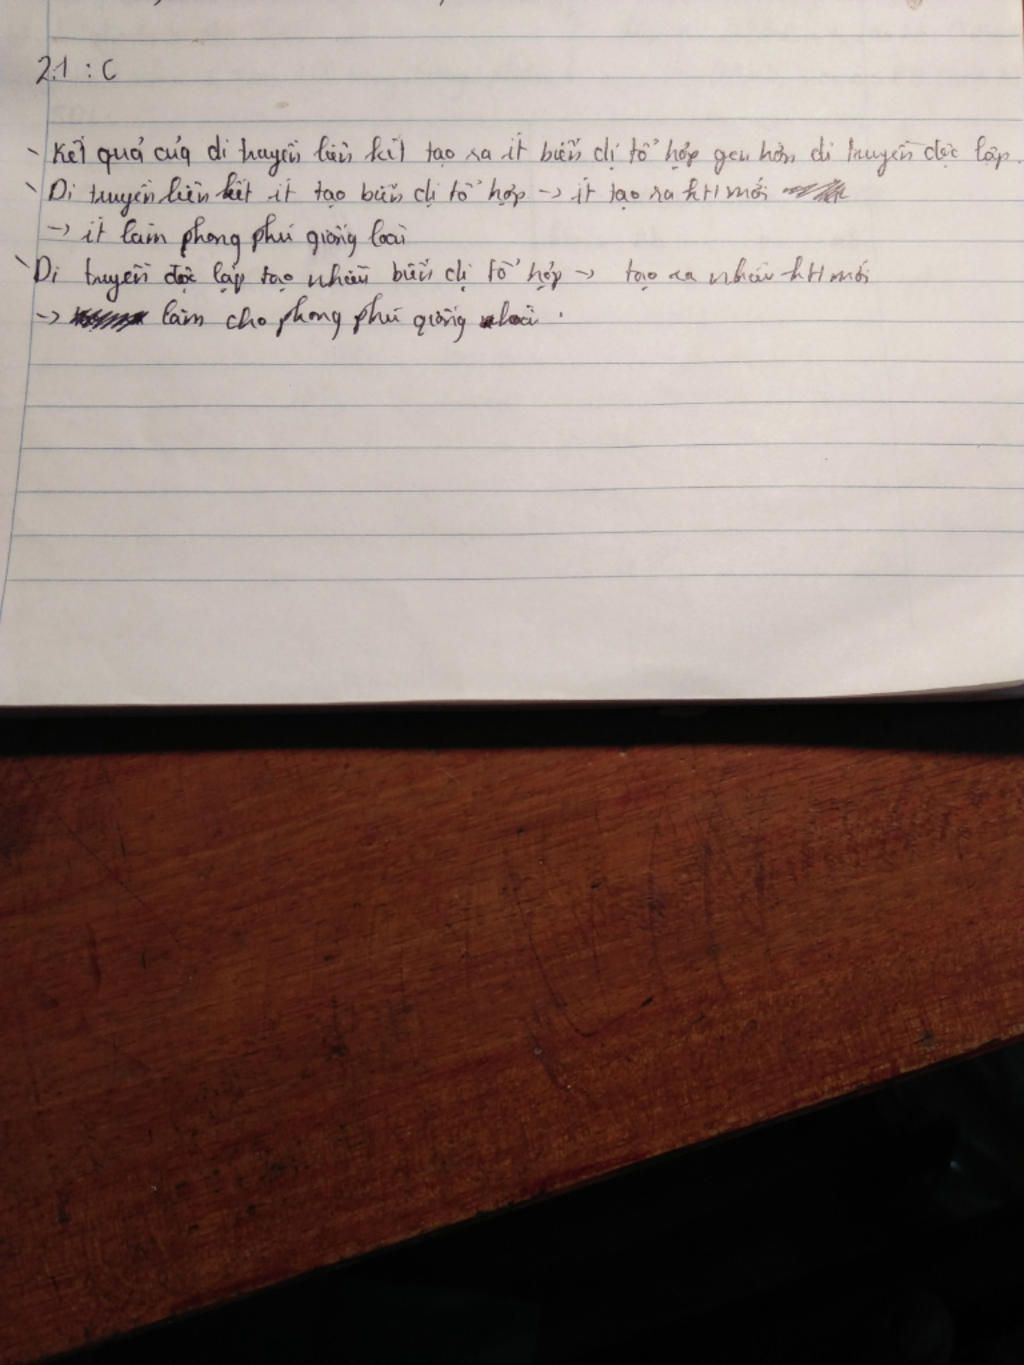 2.1 : C
- Kết quả của di truyền liên kết tạo ra ít biến dị tổ hợp gen hơn di truyền độc lập.
- Di truyền liên kết ít tạo biến dị tổ hợp -> ít tạo ra KH mới
-> ít làm phong phú giống loài
- Di truyền độc lập tạo nhiều biến dị tổ hợp -> tạo ra nhiều KH mới
-> làm cho phong phú giống loài.